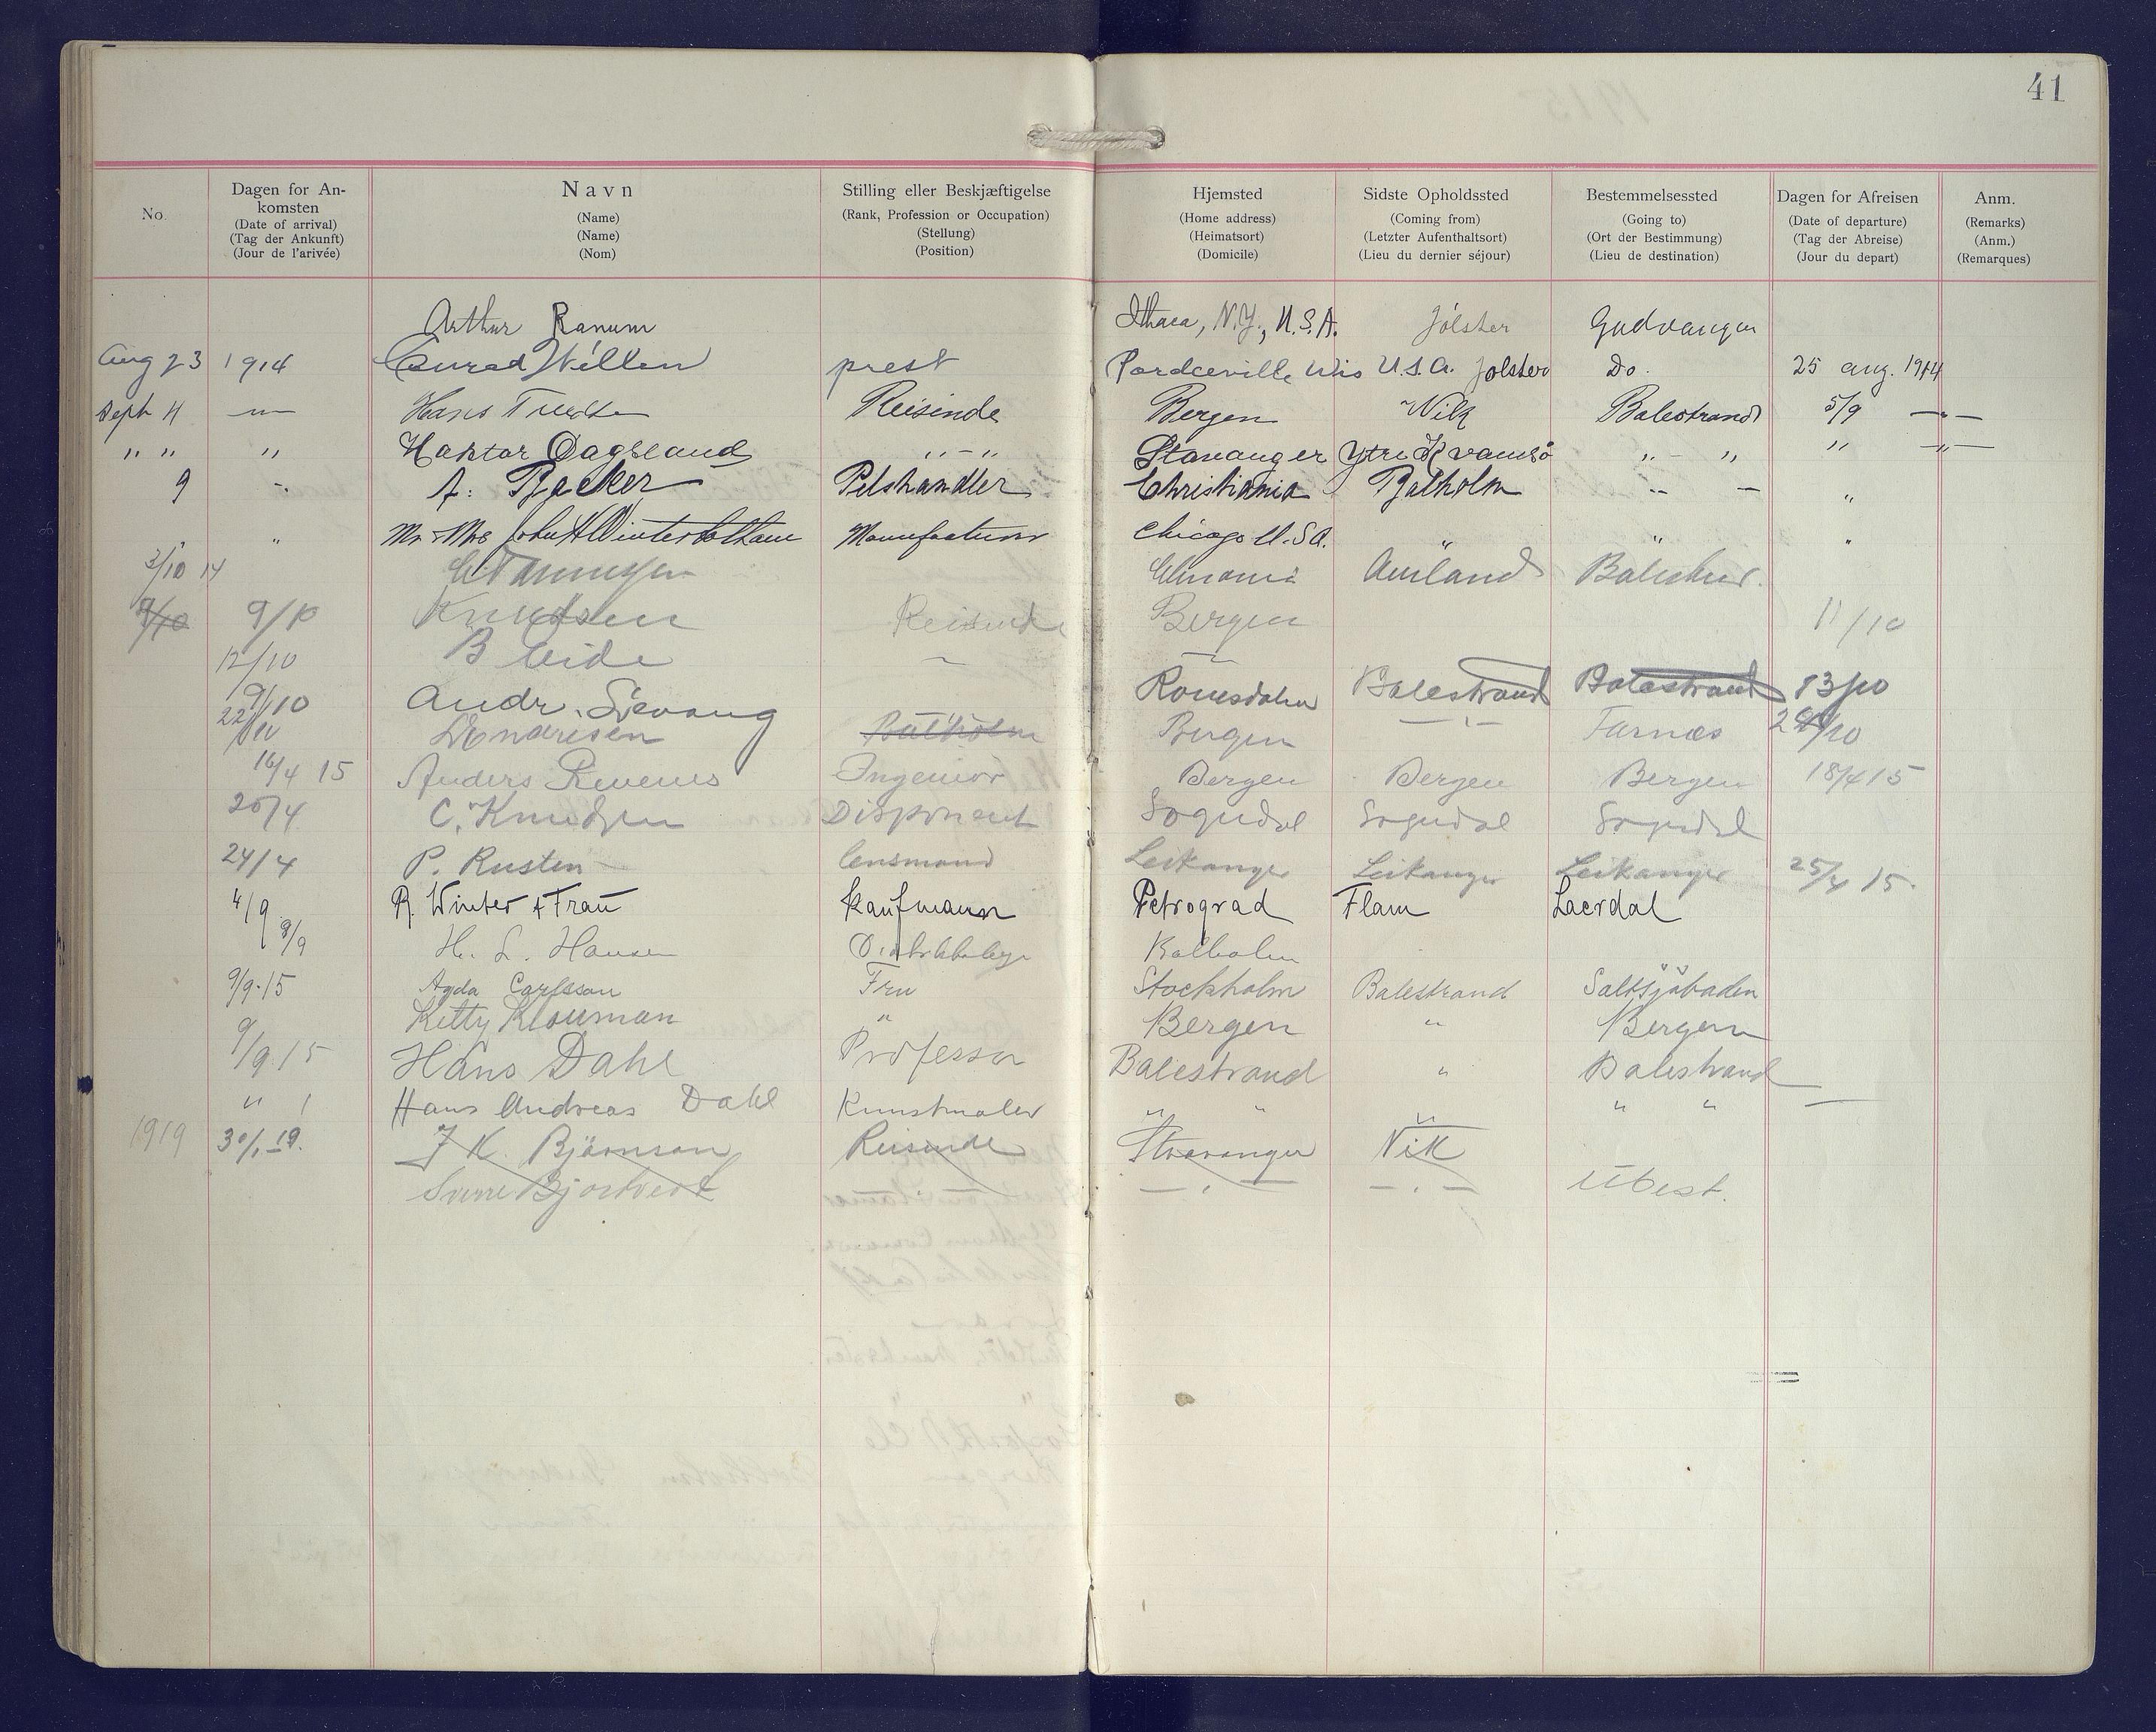 41
No. Dagen for An- Navn Stilling eller Beskjæftigelse Hjemsted Sidste Opholdssted Bestemmelsessted Dagen for Afreisen Anm.
komsten
(Date of arrival) (Name) (Rank, Profession or Occupation) (Home address) (Coming from) (Going to) (Date of departure) (Remarks)
(Tag der Ankunft) (Name) (Stellung) (Heimatsort) (Letzter Aufenthaltsort) (Ort der Bestimmung) (Tag der Abreise) (Anm.)
(Jour de l'arivée) (Nom) (Position) (Domicile) (Lieu du dernier séjour) (Lieu de destination) (Jour du depart) (Remarques)
Arthur Ranum Ithaca, N.Y., U.S.A. Jölster Gudvangen
Aug 23 1914 Conrad Wellen prest Pardeeville Wis U.S.A. Jolster Do. 25 aug. 1914
Sept 4 —"— Hans Reisende Bergen Wik Balestrand 5/9 —"—
" " " Dagsland " - " Stavanger Ytre Kvamsö " - " " —"—
9 A. Backer Pelshandler Christiania Balholm " — "
" " Mr & Mrs John H Winterbotham Manufacturer Chicago U.S.A. " " "
3/10 14 Aurland
9/10 9/10 Knudsen Reisende Bergen 11/10
12/10 B Eide
9/10 Andr. Romsdalen Balestrand Balestrand 13/10
22/10 Balholm Bergen —"— Farnæs /10
16/4 15 Anders Ingeniör Bergen Bergen Bergen 18/4 15
20/4 C. Knudsen Disponent Sogndal Sogndal Sogndal
24/4 P. Rusten lensmand Leikanger Leikanger Leikanger 25/4 15.
4/9 R. Winter + Frau Kaufmann Petrograd Flam Laerdal
8/9 H. L. Hansen Balholm
9/9-15 Agda Carlsson Fru Stockholm Balestrand Saltsjöbaden
Kitty Klouman " Bergen " Bergen
9/9 15 Hans Dahl Professor Balestrand " Balestrand
" Hans Andreas Dahl Kunstmaler " " " " "
1919 30/1-19. J K. Björnson Reisende Stavanger Vik
—"— —"— Ubest.